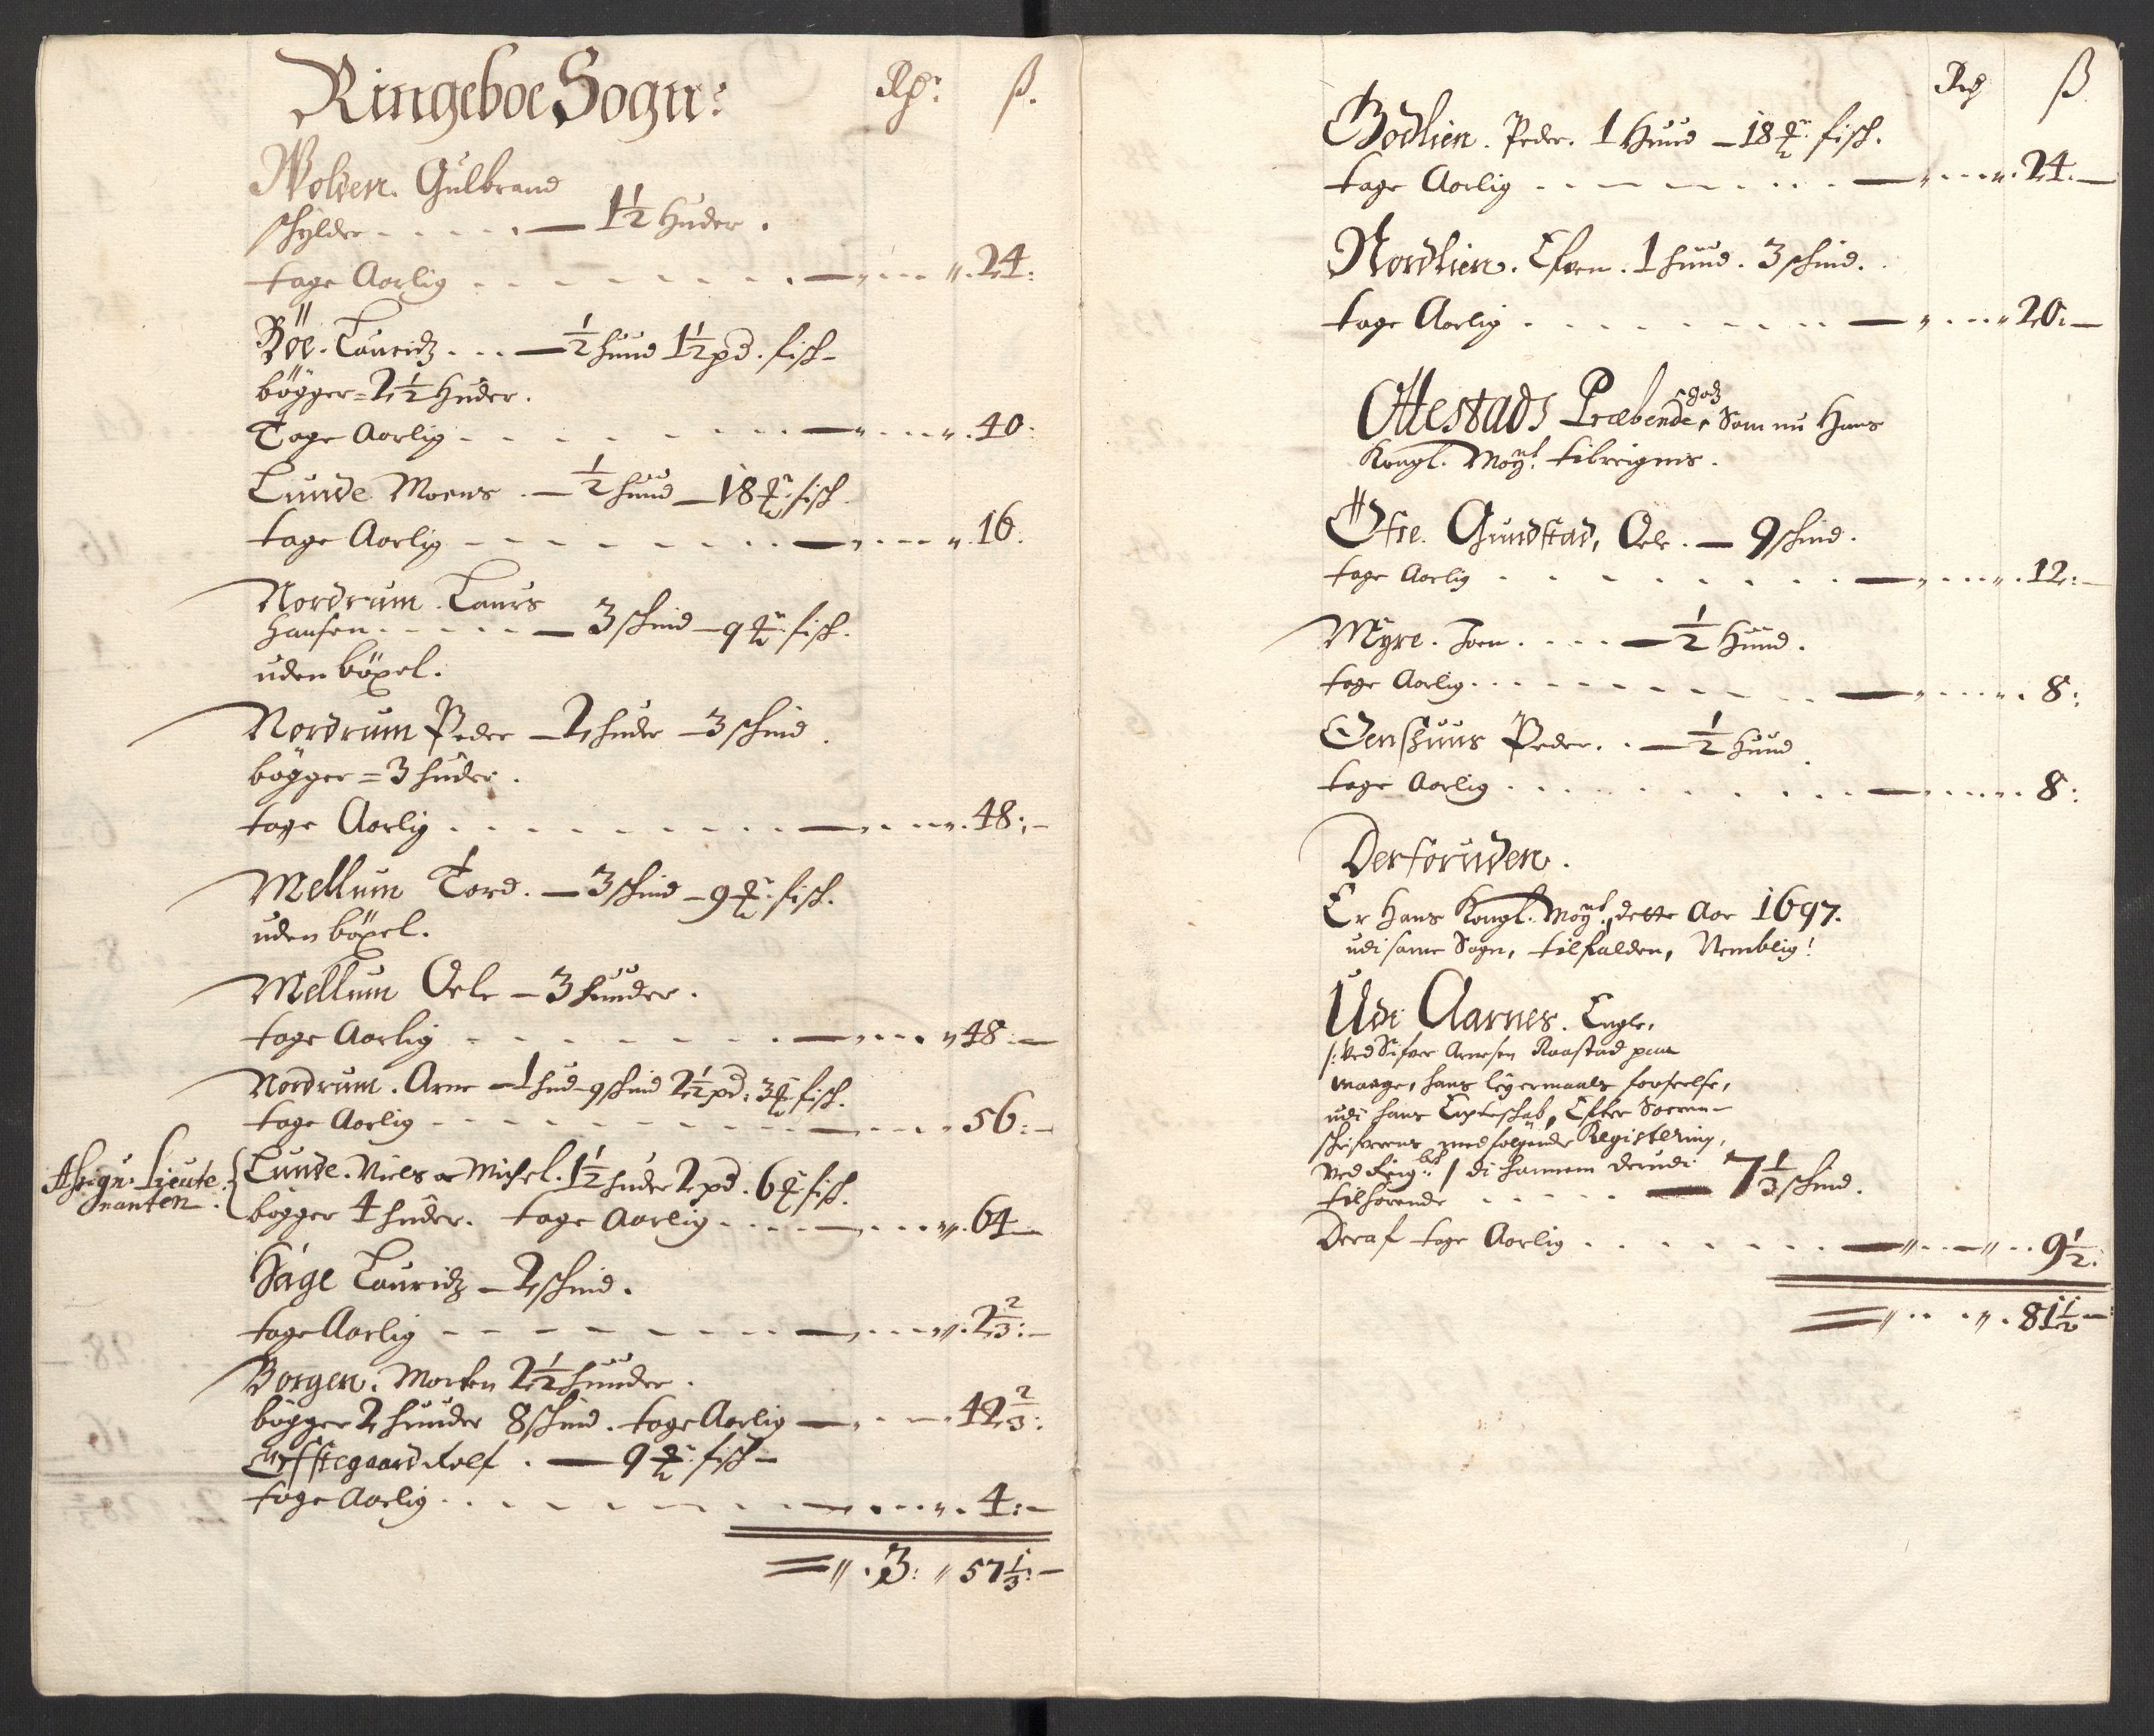 Ringeboe Sogn: Rdr. ß.
Wolden. Gulbrand
schylder - - - - - 1½ huder.
tage Aarlig - - - - 24:
Böe. Lauridz - - - ½ huud 1½ pd. fisch
böxger = 2½ huder.
Tage Aarlig - - - - 40:
Lunde Moens - ½ huud - 18 fisch
tage Aarlig - - - - 16.
Nordrum. Laurs
Hansen - - - - 3 schind - 9 fisch.
uden böxel.
Nordrum Peder - 2 huder - 3 schind.
böxger = 3 huder.
tage Aarlig - - - - 48:
Mellum Tord. - 3 schind - 9 fisch.
uden böxel.
Mellum Oele - 3 huuder.
tage Aarlig - - - - 48:
Nordrum. Arne - 1 hud - 9 schind 2½ pd: 3 fisch.
tage Aarlig - - - - 56:
Assign: Lieute
nanten.
Lunde. Niels oc Michel. 1½ huder 2 pd. 6 fisch.
böxger 4 huder. tage Aarlig - - - 64
Hage Lauridz - 2 schind.
tage Aarlig - - - - 2⅔:
Borgen. Morten 2½ huuder.
böxger 2 huuder 8 schind. tage Aarlig - - 42⅔:
Öfstegaard Rolf. - 9 fisch
tage Aarlig - - - - 4:
= 3: 57⅓:
Rdr ß
Bodlien. Peder. 1 Huud - 18 fisch.
tage Aarlig - - - - 24.
Nordlien. Efven. 1 huud. 3 schind.
tage Aarlig - - - - 20:
Ottestads Præbende godz, Som nu Hans
Kongl. Mayt. tilreignis.
Öfre. Gundstad, Oele. - 9 schind.
tage Aarlig - - - - 12:
Myre. Joen. - - - ½ Huud.
tage Aarlig - - - - 8:
Peder. - ½ Huud.
tage Aarlig - - - - 8:
Derforuden.
Er Hans Kongl. Mayt. dette Aar 1697.
udi same Sogn, tilfalden, Nemblig:
Udi Aarnes. Engle,
/: Ved Sifver Arnesen Raastad paa
Maage, hans leyermaals forseelse,
udi hans Egteschab, Efter Soeren-
schrifverens medfolgende Registering,
Ved / di hannem derudi
tilhörende - - - 7⅓ schind.
Deraf tage Aarlig - - - - 9½:
= 81½